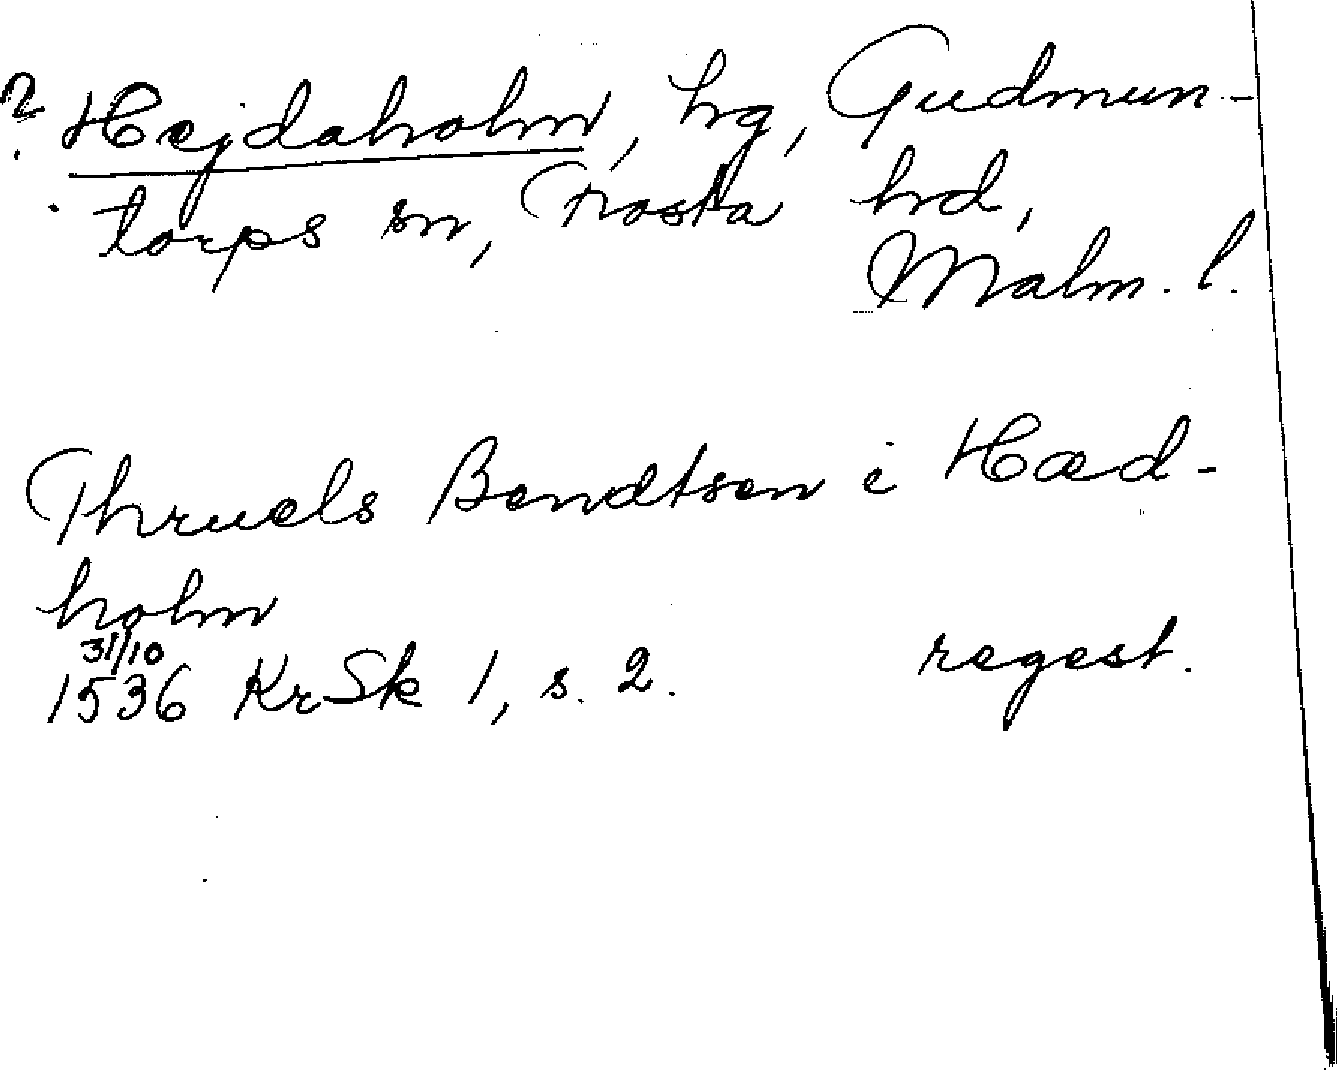 ? Hejdaholm, hg, Gudmun-
torps sn, Frosta hrd,
Malm. l.
Thruels Bendtsen i Hæd-
holm
31/10
1536 KrSk 1, s. 2. regest.